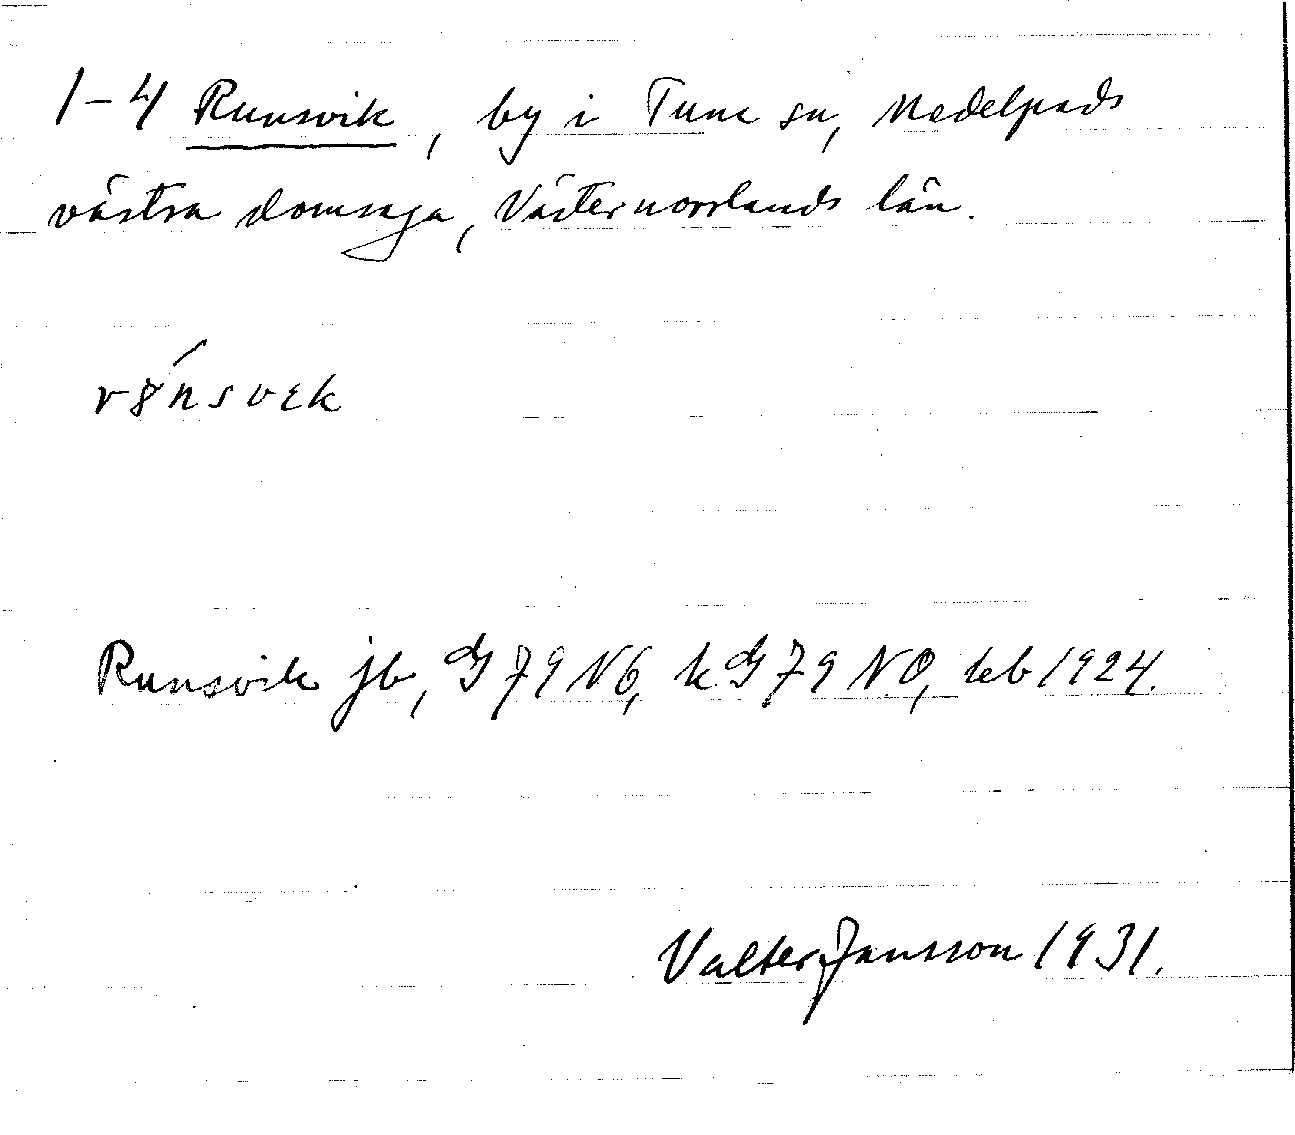 1–4 Runsvik, by i Tuna sn, Medelpads
västra domsaga, Västernorrlands län.
Runsvik jb, G 79 NO, k G 79 NO, teb 1924.
Valter Jansson 1931.